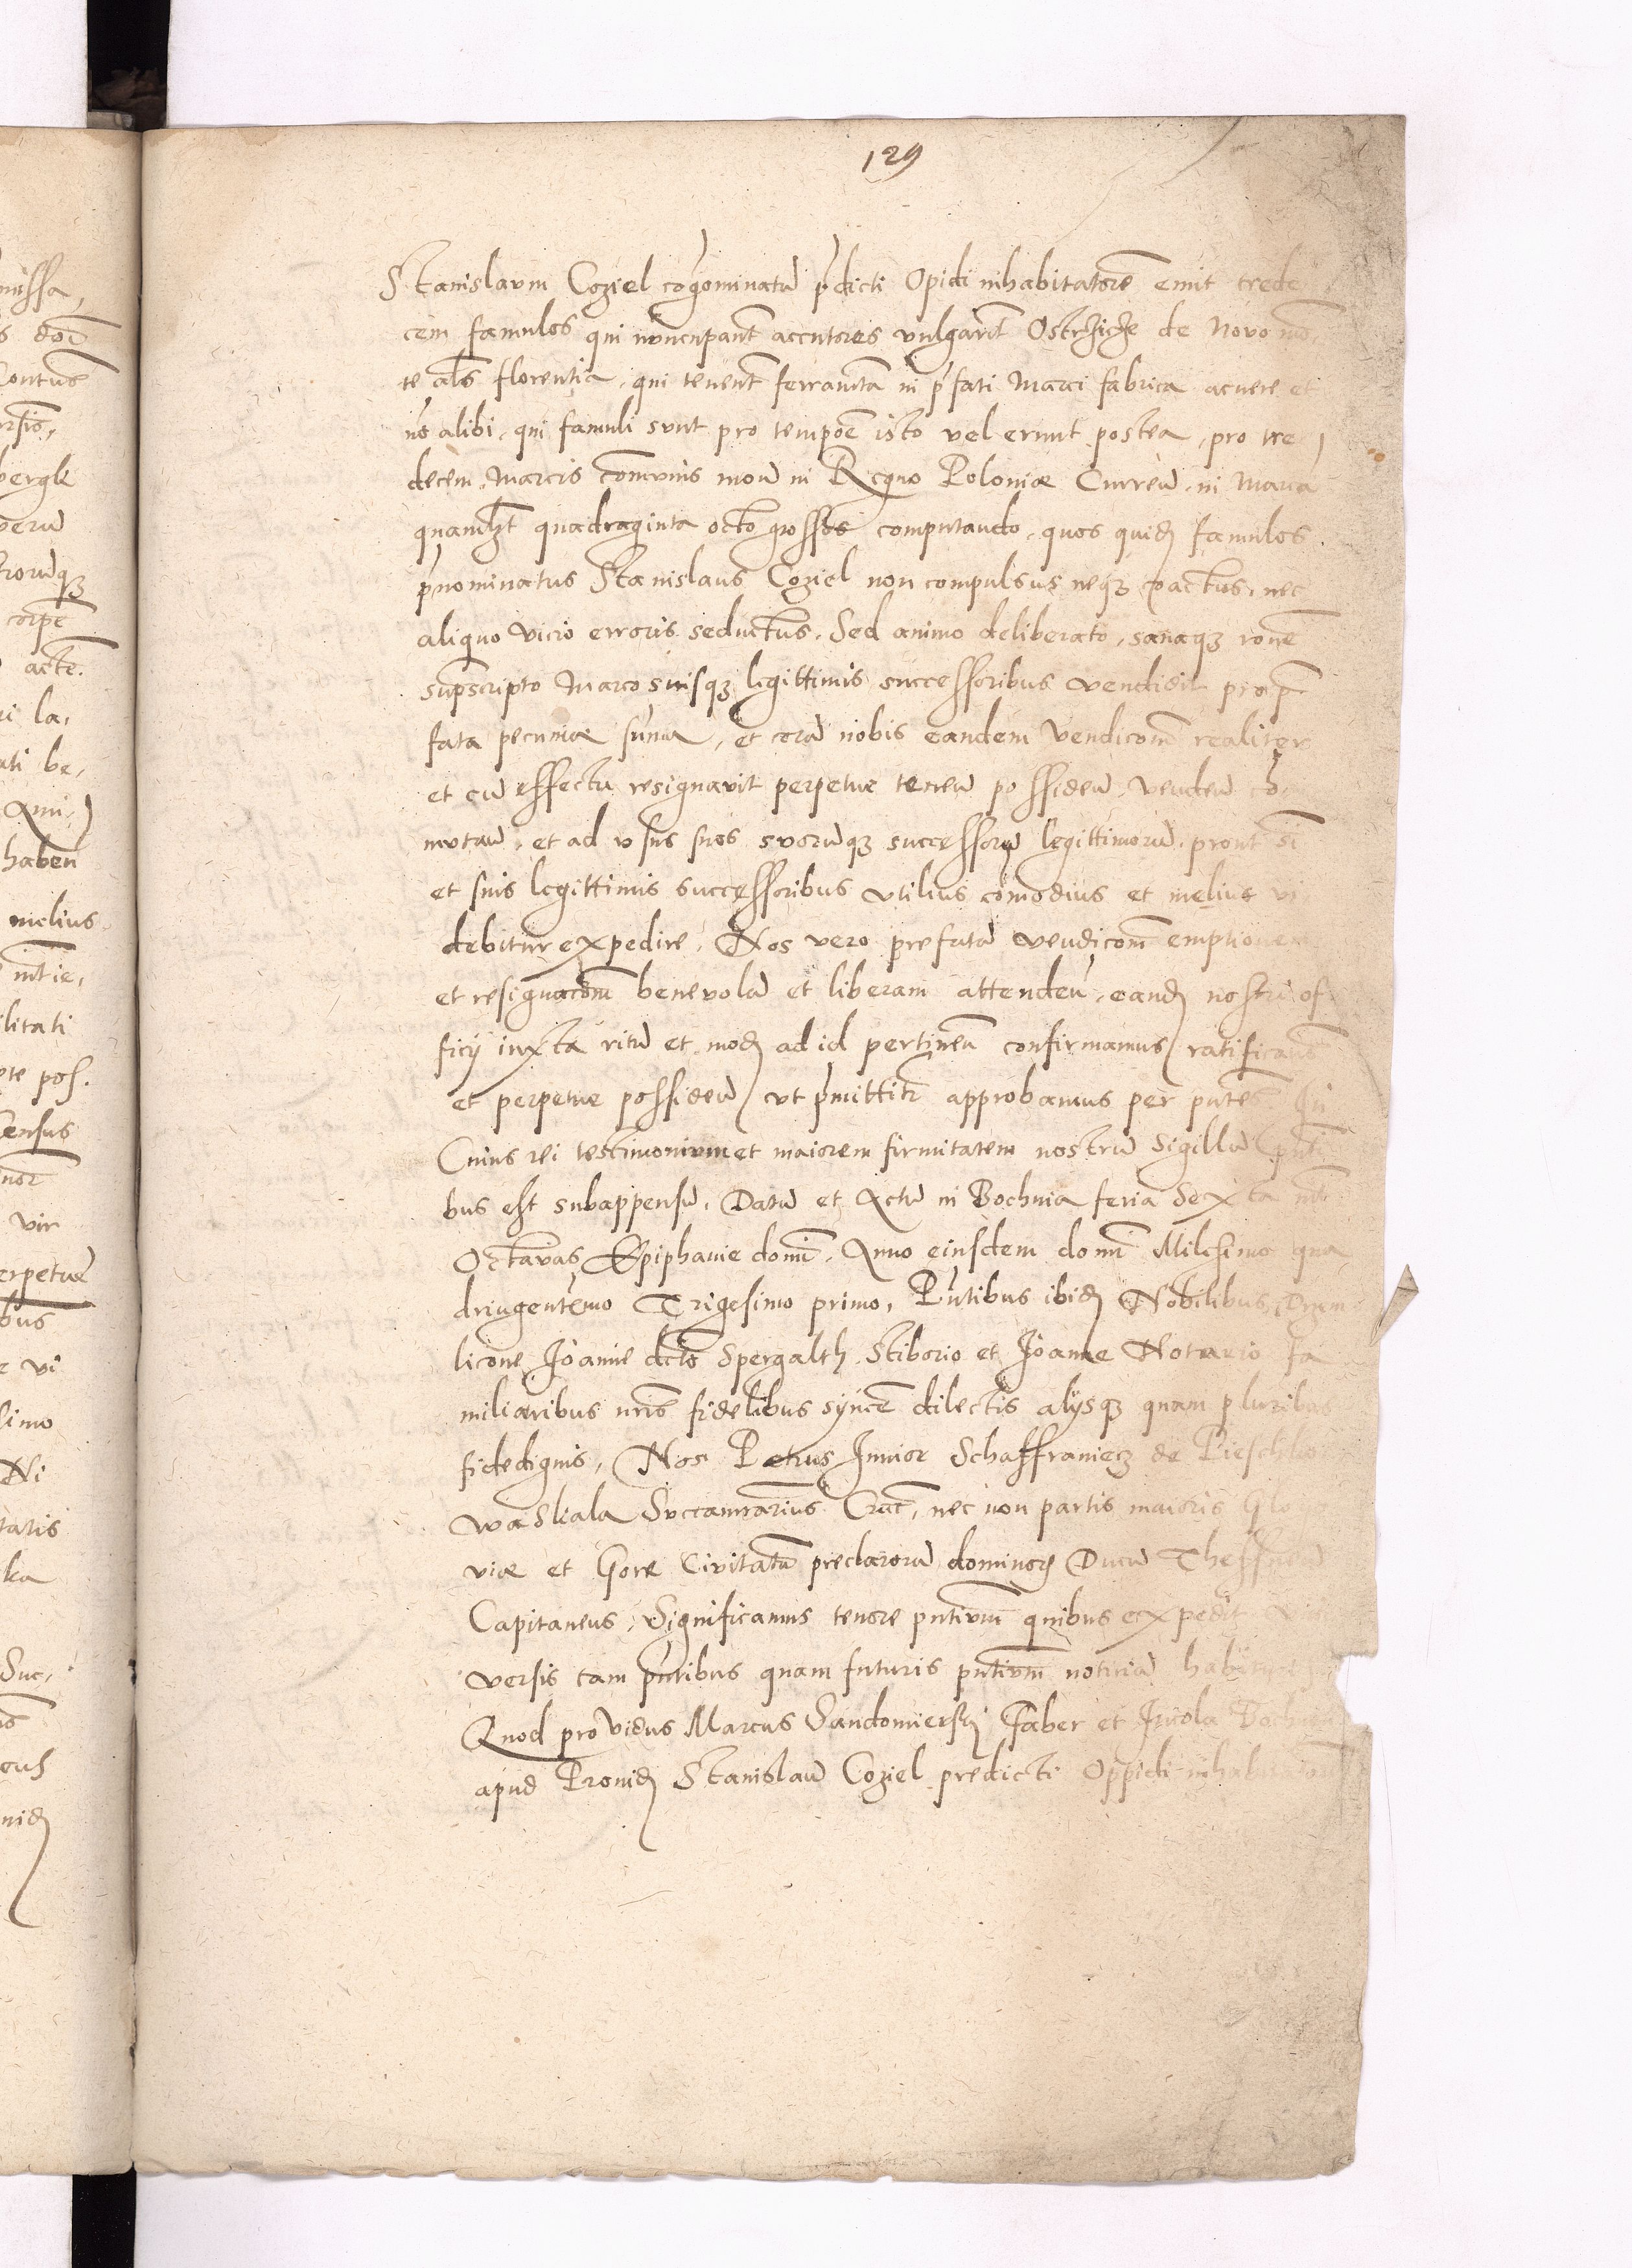 129
Stanislaum Coziel cognominatū p̄dicti Opidi inhabitatorē emit trede
cem famulos qui nuncupant̄ accutores vulgarit̄ Ostrzicze de Novo mō
te als̄ florentia, qui tenent̄ ferramēta in p̄fati Marci fabrica acuere et
nō alibi, qui famuli sunt pro tempoē isto vel erunt postea, pro tre
decem Marcis Comūnis moñ in Regno Poloniæ Curreñ, in Marca
quamlȝt quadraginta octo grossos computando, quos quidē famulos
p̄nominatus Stanislaus Coziel non compulsus neqȝ coactus, nec
aliquo vicio erroris seductus, Sed animo deliberato, sanaqȝ roñe
supscripto Marco suisqȝ legittimis successoribus vendidit pro p̄
fata pecuniæ sūma, et corā nobis eandem Vendicoñm realiter
et cū effectu resignavit perpetue teneñ possideñ, vendeñ cō
mutañ, et ad usus suos suorūqȝ successorū legittimorū, prout si
et suis legittimis successoribus utilius cōmodius et melius vi
debitur expedire, Nos vero prefatā vendicoñm emptionem
et resignacoñm benevolā et liberam attendeñ, eandē nostri of
ficij iuxta ritū et modū ad id pertineñ confirmamus ratificamus
et perpetue possideñ ut p̄mittit̄ approbamus per pn̄tes In
Cuius rei testimonium et maiorem firmitatem nostrū Sigillū pn̄ti
bus est subappensū, Datū et Actū in Bochnia feria Sexta infra
Octavas Epiphanie domī, Anno eiusdem domī Milesimo qua
dringentēmo Trigesimo primo, Pn̄tibus ibidē Nobilibus
licone Joanne dcto Spergalth Stiborio et Joanne Notario fa
miliaribus nris fidelibus syncē dilectis alijsqȝ quam pluribus
fidedignis, Nos Petrus Junior Schaffraniecz de
wa Skala Succamerarius Crac̄, nec non partis maioris Glo
viæ et Gore Civitatū preclarorū dominorū Ducū
Capitaneus, Significamus tenore pn̄tium quibus expedit
versis tam pn̄tibus quam futuris pn̄tium noticiā habituris
Quod providus Marcus Sandomiersky Faber et Incola Bochnen
apud Providū Stanislaū Coziel predicti Oppidi inhabitatorē